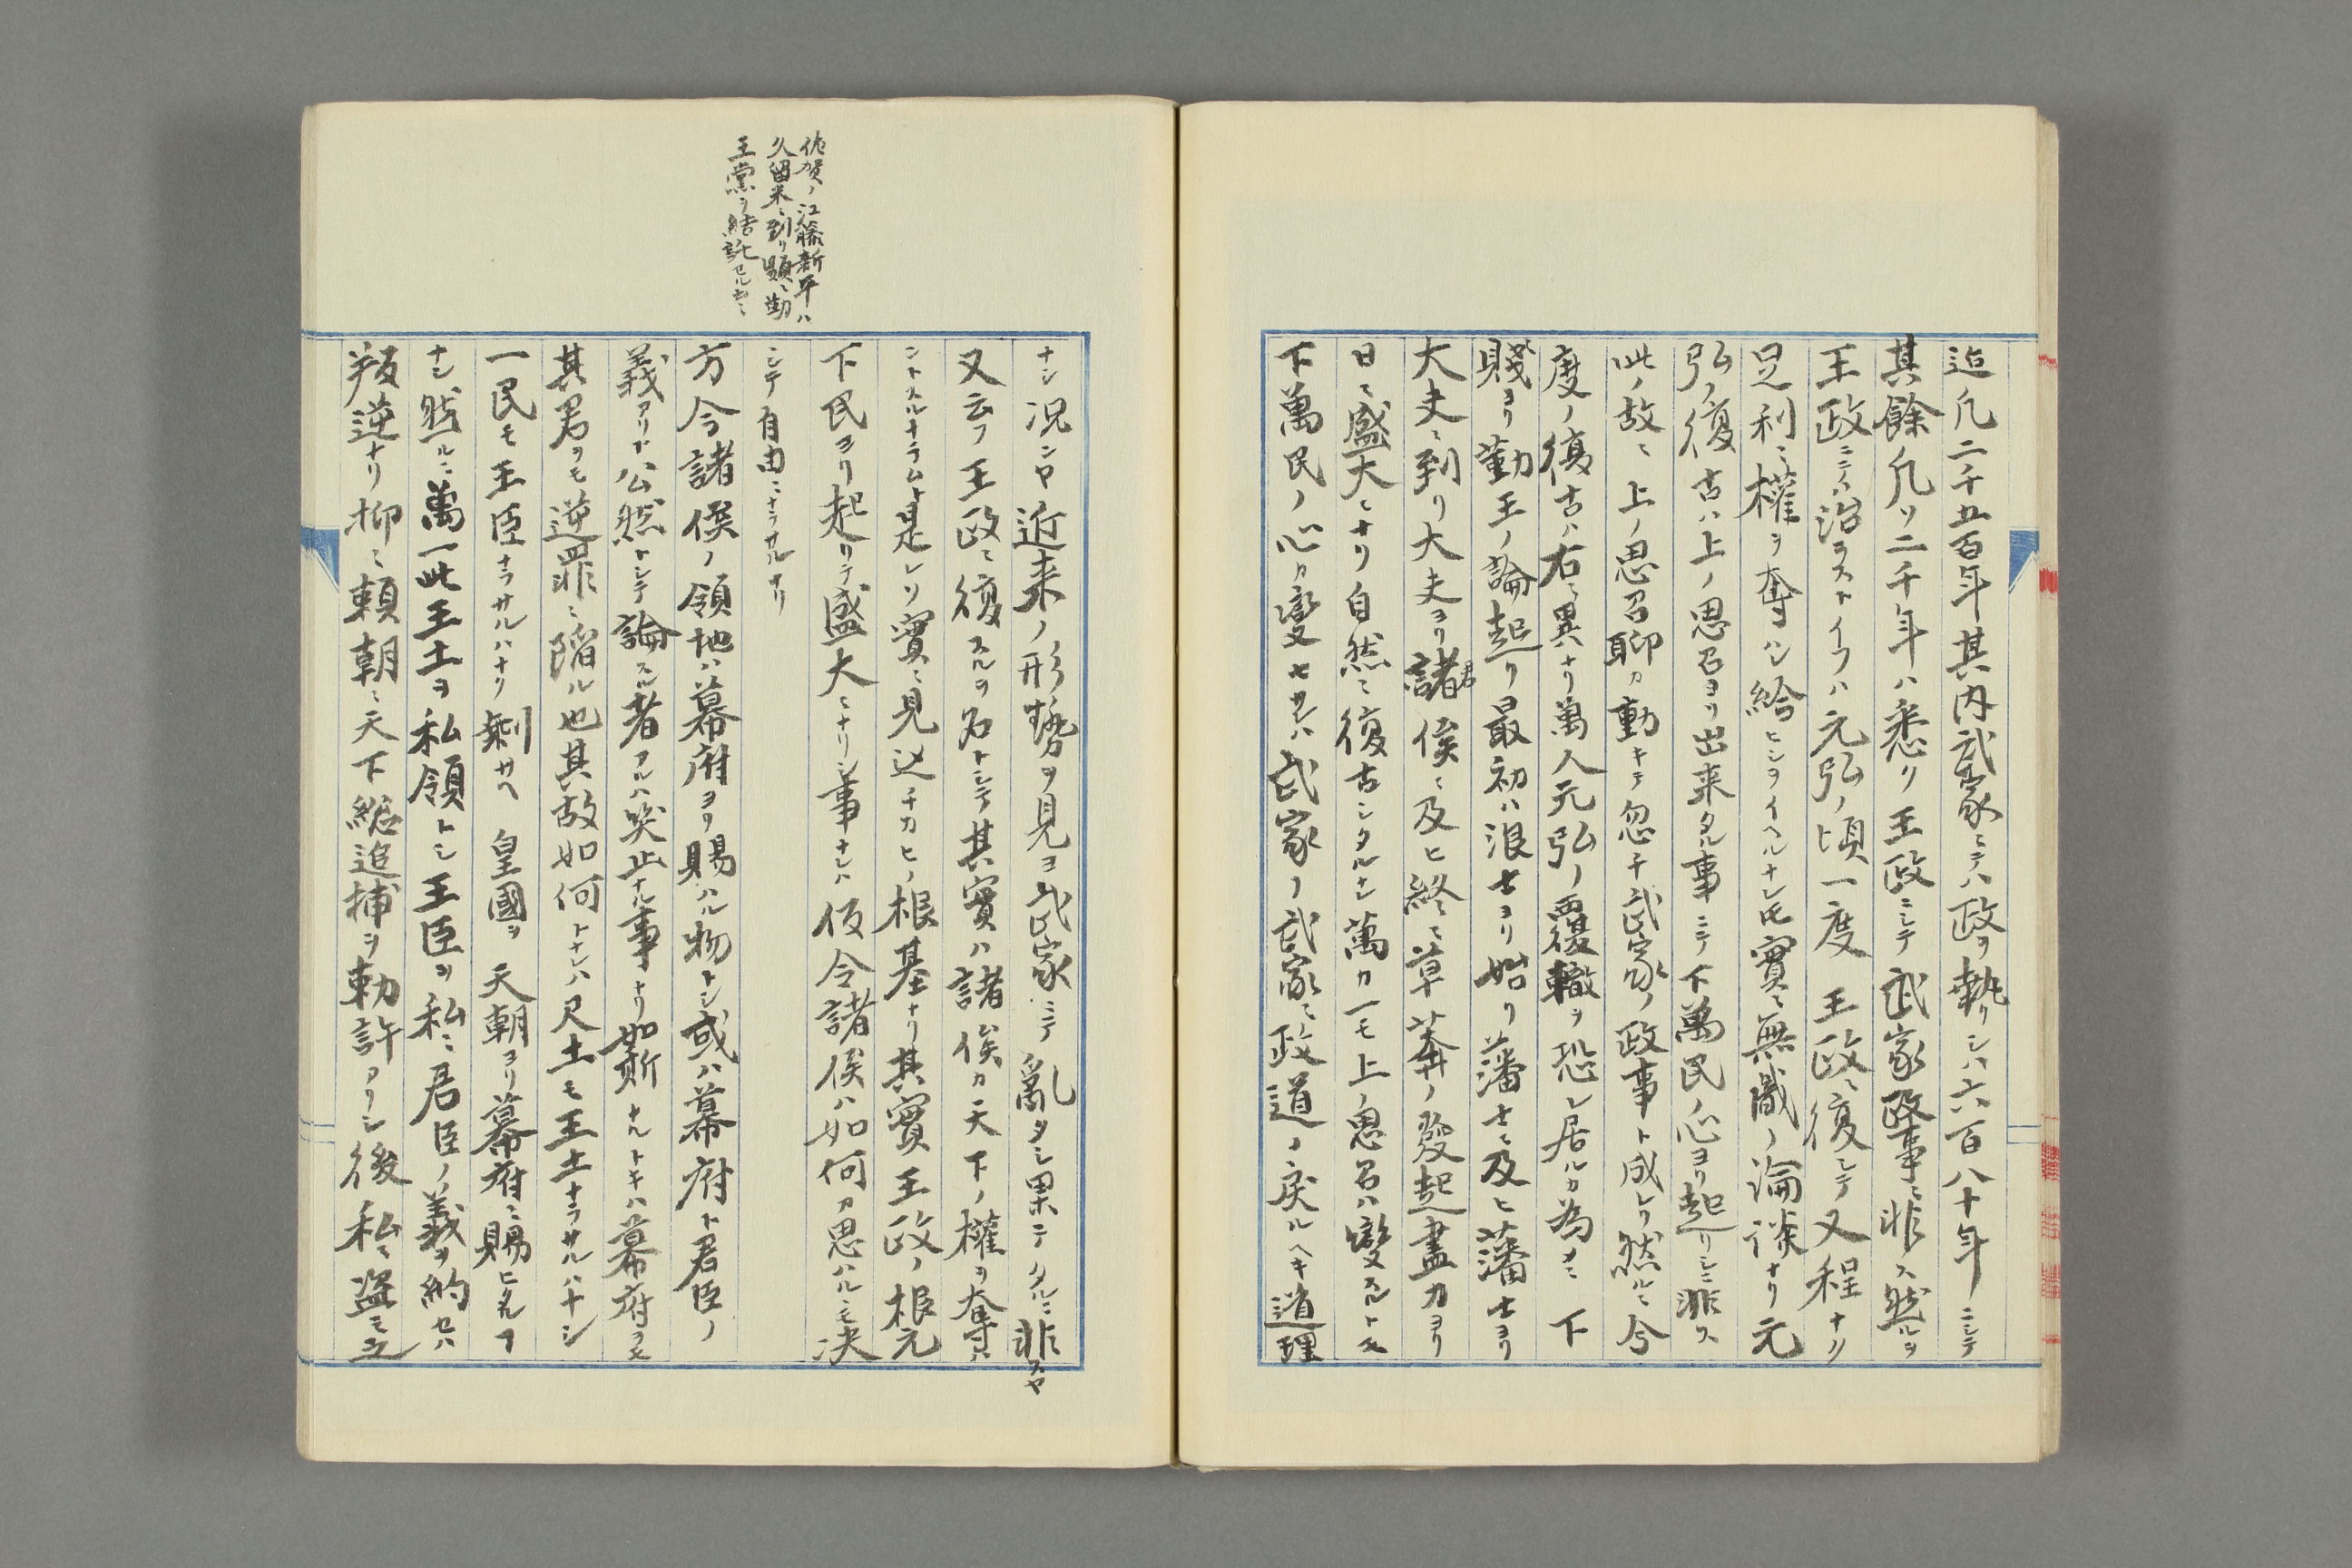 迄凢二千五百年其内武家ニテハ政ヲ執リシハ六百八十年ニシテ
其餘凡ソ二千年ハ悉ク王政ニシテ武家政事ニ非ス然ルヲ
王政ニテハ治ラストイフハ元弘ノ頃一度王政ニ復シテ又程ナク
足利ニ權ヲ奪ハレ給ヒシヲイヘルナレ𪜈實ニ無識ノ論談ナリ元
弘ノ復古ハ上ノ思召ヨリ出来タル事ニテ下萬民ノ心ヨリ起リシニ非ス
此ノ故ニ上ノ思召聊カ動キテ忽チ武家ノ政事ト成レリ然ルニ今
度ノ復古ハ右ニ異ナリ萬人元弘ノ覆轍ヲ恐レ居ルカ為メニ下
賤ヨリ勤王ノ論起リ最初ハ浪士ヨリ始リ藩士ニ及ヒ藩士ヨリ
大夫ニ到リ大夫ヨリ諸侯ニ及ヒ終ニ草莽ノ發起盡力ヨリ
日ニ盛大ニナリ自然ニ復古シタルナレ萬カ一モ上ノ思召ハ變スルトモ
下萬民ノ心カ變セサレハ武家ノ武家ニ政道ノ戻ルヘキ道理
ナシ況ニヤ近来ノ形勢ヲ見ヨ武家ニテ亂タシ果テタルニ非スヤ
又云フ王政ニ復スルヲ名トシテ其實ハ諸侯カ天下ノ權ヲ奪ハ
ントスルナラムト是レソ實ニ見込チカヒノ根基ナリ其實王政ノ根元
下民ヨリ起リテ盛大ニナリシ事ナレハ仮令諸侯ハ如何カ思ハルニモ決
シテ自由ニナラサルナリ
方今諸侯ノ領地ハ幕府ヨリ賜ハル物トシ或ハ幕府ト君臣ノ
義アリナト公然トシテ論スル者アルハ笑止ナル事ナリ如斯ナルトキハ幕府ヲモ
其君ヲモ逆罪ニ陥ル也其故如何トナレハ尺土モ王土ナラサルハナシ
一民モ王臣ナラサルハナリ剰サヘ皇國ヲ天朝ヨリ幕府ニ賜ヒタルヿ
ナシ然ルニ萬一此王土ヲ私領トシ王臣ヲ私ニ君臣ノ義ヲ約セハ
叛逆ナリ抑ニ頼朝ニ天下総追捕ヲ勅許アリシ後私ニ盗ミ立
佐賀ノ江藤新平ハ
久留米ニ到リ顕ニ勤
王黨ヲ結託セルヤニ